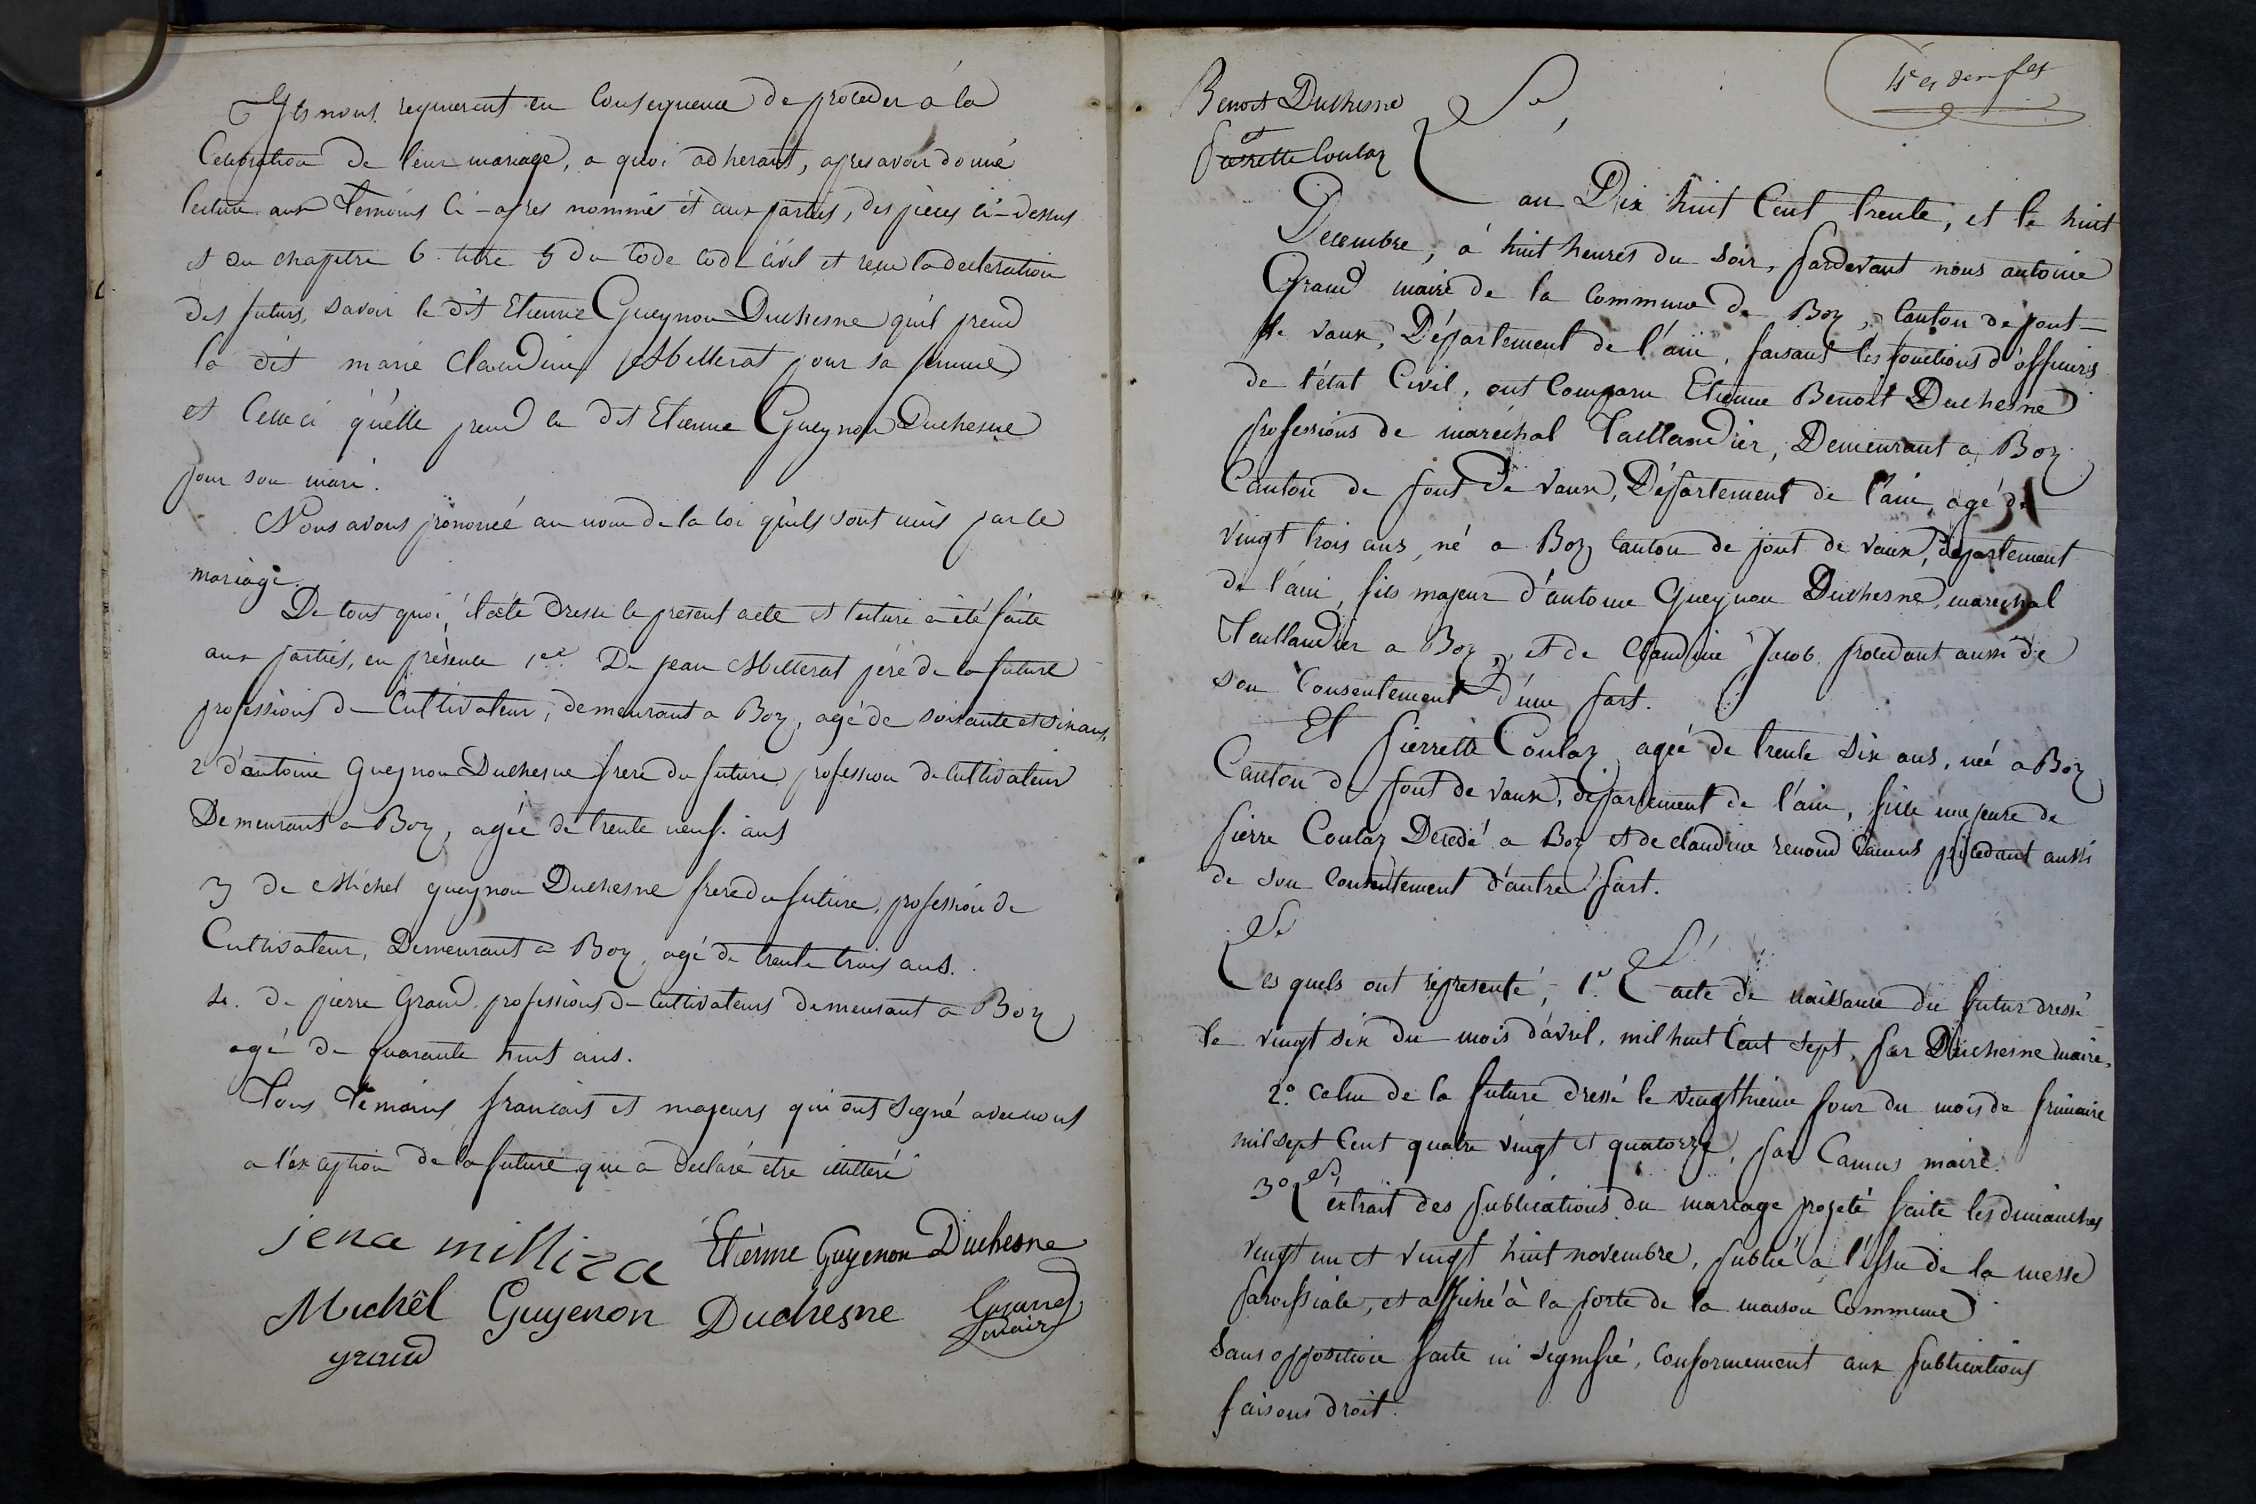 Ils nous requierent en Consequence de proceder a la
Celebration de leur mariage, a quoi adherant, apres avoir donné
lecture aux temoins Ci-apres nommés et aux parties, des pieces ci-dessus
et du chapitre 6 titre 5 du Code Code Civil et recu la declaration
des futurs, savoir le dit Etienne Gueynon Duchesne qu'il prend
la dit marie Claudine Milterat pour sa femme
et Celle ci qu'elle prend le dit Etienne Gueynon Duchesne
pour son mari.
Nous avons prononcé au nom de la loi qu'ils sont unis par le
mariage.
De tout quoi, il a été Dressé le present acte et lecture a été faite
aux parties, en présence 1er De jean Milterat père de la future
professions de Cultivateur, demeurant a Boz, agé de soixante et six ans,
2 d'antoine Gueynon Duchesne frere du future profession de Cultivateur
Demeurant a Boz, agée de trente neuf ans
3 de Michel gueynon Duchesne frere du future, profession de
Cultivateur, Demeurant a Boz, agé de trente trois ans.
4. de pierre Grand professions de Cultivateurs demeurant a Boz
agé de quarante huit ans.
Tous Témoins francais et majeurs qui ont signé avec nous
a l'exception de la future qui a declaré etre illitteré
jena milliza Etienne Guyenon Duchesne
Michel Guyenon Duchesne Grand
maire
grand
Benoit Duchesne
et
pierrette Coulaz
L'an Dix huit Cent trente, et le huit
Decembre, à huit heures du soir, pardevant nous antoine
Grand maire de la Commune de Boz, Canton de pont-
de vaux, Département de l'ain, faisant les fonctions d'officiers
de l'état Civil, ont Comparu Etienne Benoit Duchesne
professions de maréchal Taillandier, Demeurant a Boz
Canton de pont de vaux, Département de l'ain, agé de
vingt trois ans, né a Boz Canton de pont de vaux, département
de l'ain, fils majeur d'antoine Gueynon Duchesne, marechal
Taillandier a Boz, et de Claudine Jacob procedant aussi de
son Consentement d'une part.
Et pierrette Coulaz agée de trente six ans, née a Boz
Canton de pont de vaux, département de l'ain, fille majeure de
pierre Coulaz Decedé a Boz et de claudine renoud Camus procedant aussi
de son Consentement d'autre part.
Les quels ont répresenté, 1.° L'acte de naissance du futur dressé
le vingt six du mois d'avril, mil huit Cent sept, par Duchesne maire,
2.° celui de la future dressé le vingthieme jour du mois de frimaire
mil sept Cent quatre vingt et quatorze, par Camus maire.
3° L'éxtrait des publications du mariage projeté faite les dimanches
vingt un et vingt huit novembre, publié a l'issue de la messe
paroissiale, et affiché à la porte de la maison Commune
sans opposition faite ni signifié, Conformement aux publications
faisons droit.